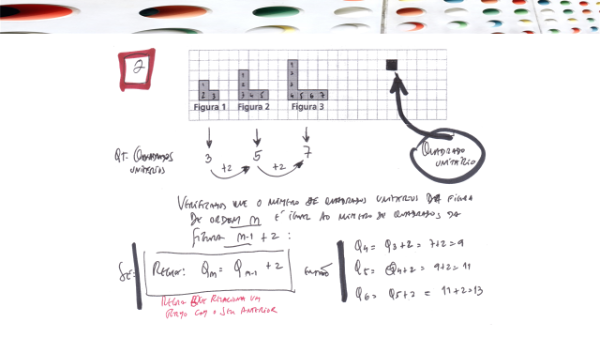 2
1
2 3
Figura 1
1
2
3 4 5
Figura 2
1
2
3
4 5 6 7
Figura 3
QT. QUADRADOS UNITÁRIOS
3 5 7
+2 +2
QUADRADO UNITÁRIO
VERIFICAMOS QUE O NÚMERO DE QUADRADOS UNITÁRIOS DA FIGURA
DE ORDEM m É IGUAL AO NÚMERO DE QUADRADOS DA
FIGURA m-1 + 2 :
SE:
REGRA: Qm = Qm-1 + 2
REGRA QUE RELACIONA UM
TERMO COM O SEU ANTERIOR
ENTÃO
Q4 = Q3+2 = 7+2=9
Q5 = Q4+2 = 9+2=11
Q6 = Q5+2 = 11+2=13